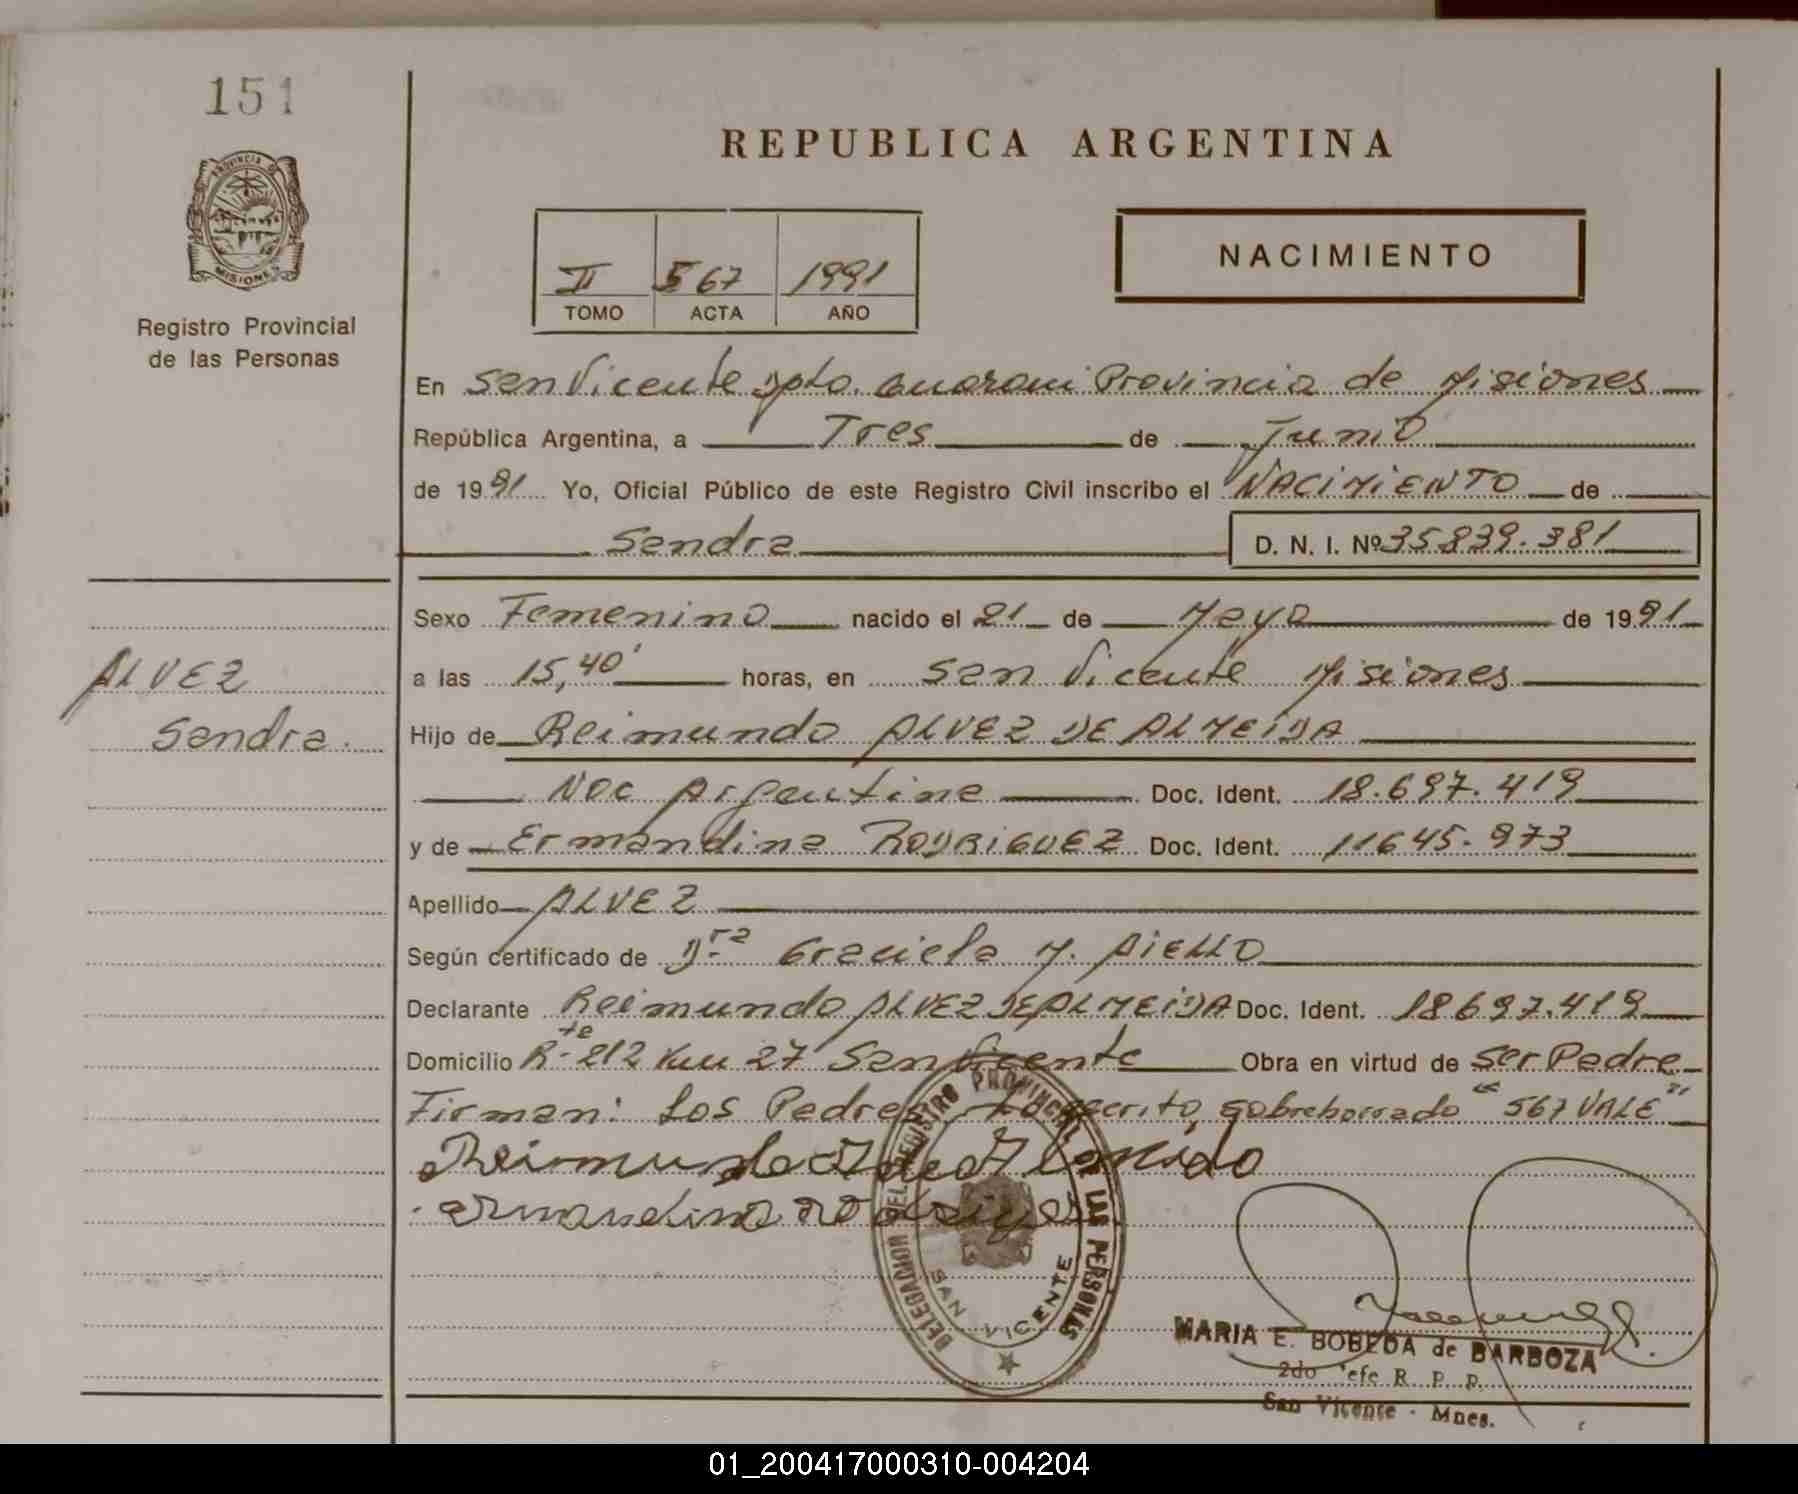 151
PROVINCIA DE
MISIONES
Registro Provincial
de las Personas
REPUBLICA ARGENTINA
NACIMIENTO
II 567 1991
TOMO ACTA AÑO
En San Vicente Dpto. Guarani Provincia de Misiones
República Argentina, a Tres de Junio
de 1991 Yo, Oficial Público de este Registro Civil inscribo el NACIMIENTO de
Sandra D. N. I. Nº 35839.381
Sexo Femenino nacido el 21 de Mayo de 1991
ALVEZ
Sandra.
a las 15,40' horas, en San Vicente Misiones
Hijo de Reimundo ALVEZ DE ALMEIDA
Nac Argentina Doc. Ident. 18.697.419
y de Ermandina RODRIGUEZ Doc. Ident. 11645.973
Apellido ALVEZ
Según certificado de Dra Graciela M. AIELLO
Declarante Reimundo ALVEZ DE ALMEIDA Doc. Ident. 18697.419
Domicilio Rte 212 Km 27 San Vicente Obra en virtud de Ser Padre
Firman: Los Padres sobreborrado "567 VALE"
Reimundo A de Almeida
ermandina rodriguez
DELEGACION DEL REGISTRO PROVINCIAL DE LAS PERSONAS
SAN VICENTE
MARIA E. BOBEDA de BARBOZA
2do Jefe R. P. P.
San Vicente - Mnes.
01_200417000310-004204